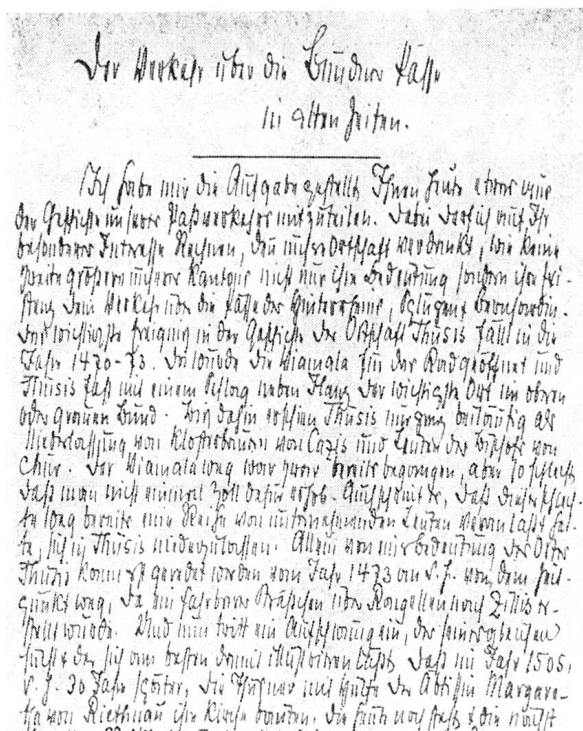 Der Verkehr über die Bündner Pässe
in alten Zeiten.
Ich habe mir die Aufgabe gestellt, Ihnen heute etwas aus
der Geschichte unseres Passverkehrs mitzuteilen. Dabei darf ich auf Ihr
besonderes Interesse rechnen, denn unsere Ortschaft verdankt, wie keine
zweite grössere unseres Kantons nicht nur ihre Bedeutung sondern ihre Exi-
stenz dem Verkehr über die Pässe des Hinterrheins, Splügen & Bernhardin.
Das wichtigste Ereignis in der Geschichte der Ortschaft Thusis fällt in die
Jahre 1470-73. Da wurde die Viamala für das Rod geöffnet und
Thusis fast mit einem Schlag neben Ilanz der wichtigste Ort im obern
oder grauen Bund. Bis dahin erschien Thusis nur ganz beiläufig als
Niederlassung von Klosterbauern von Cazis und Leuten des Bischofs von
Chur. Der Viamalaweg war zwar bereits begangen, aber so schlecht
dass man nicht einmal Zoll dafür erhob. Auch scheint es, dass dieser schlech-
te Weg bereits eine Reihe von unternehmenden Leuten veranlasst hat-
te, sich in Thusis niederzulassen. Allein von einer Bedeutung des Ortes
Thusis kann erst geredet werden vom Jahr 1473 an d. h. von dem Zeit-
punkt weg, da ein fahrbares Strässchen über Rongellen nach Zillis er-
stellt wurde. Und nun tritt ein Aufschwung ein, der seinesgleichen
sucht & der sich am besten damit illustrieren lässt, dass im Jahr 1505,
d. h. 30 Jahre später, die Thusner mit Hülfe der Äbtissin Margare-
tha von Riethnau ihre Kirche bauten, die heute noch steht & die nächst